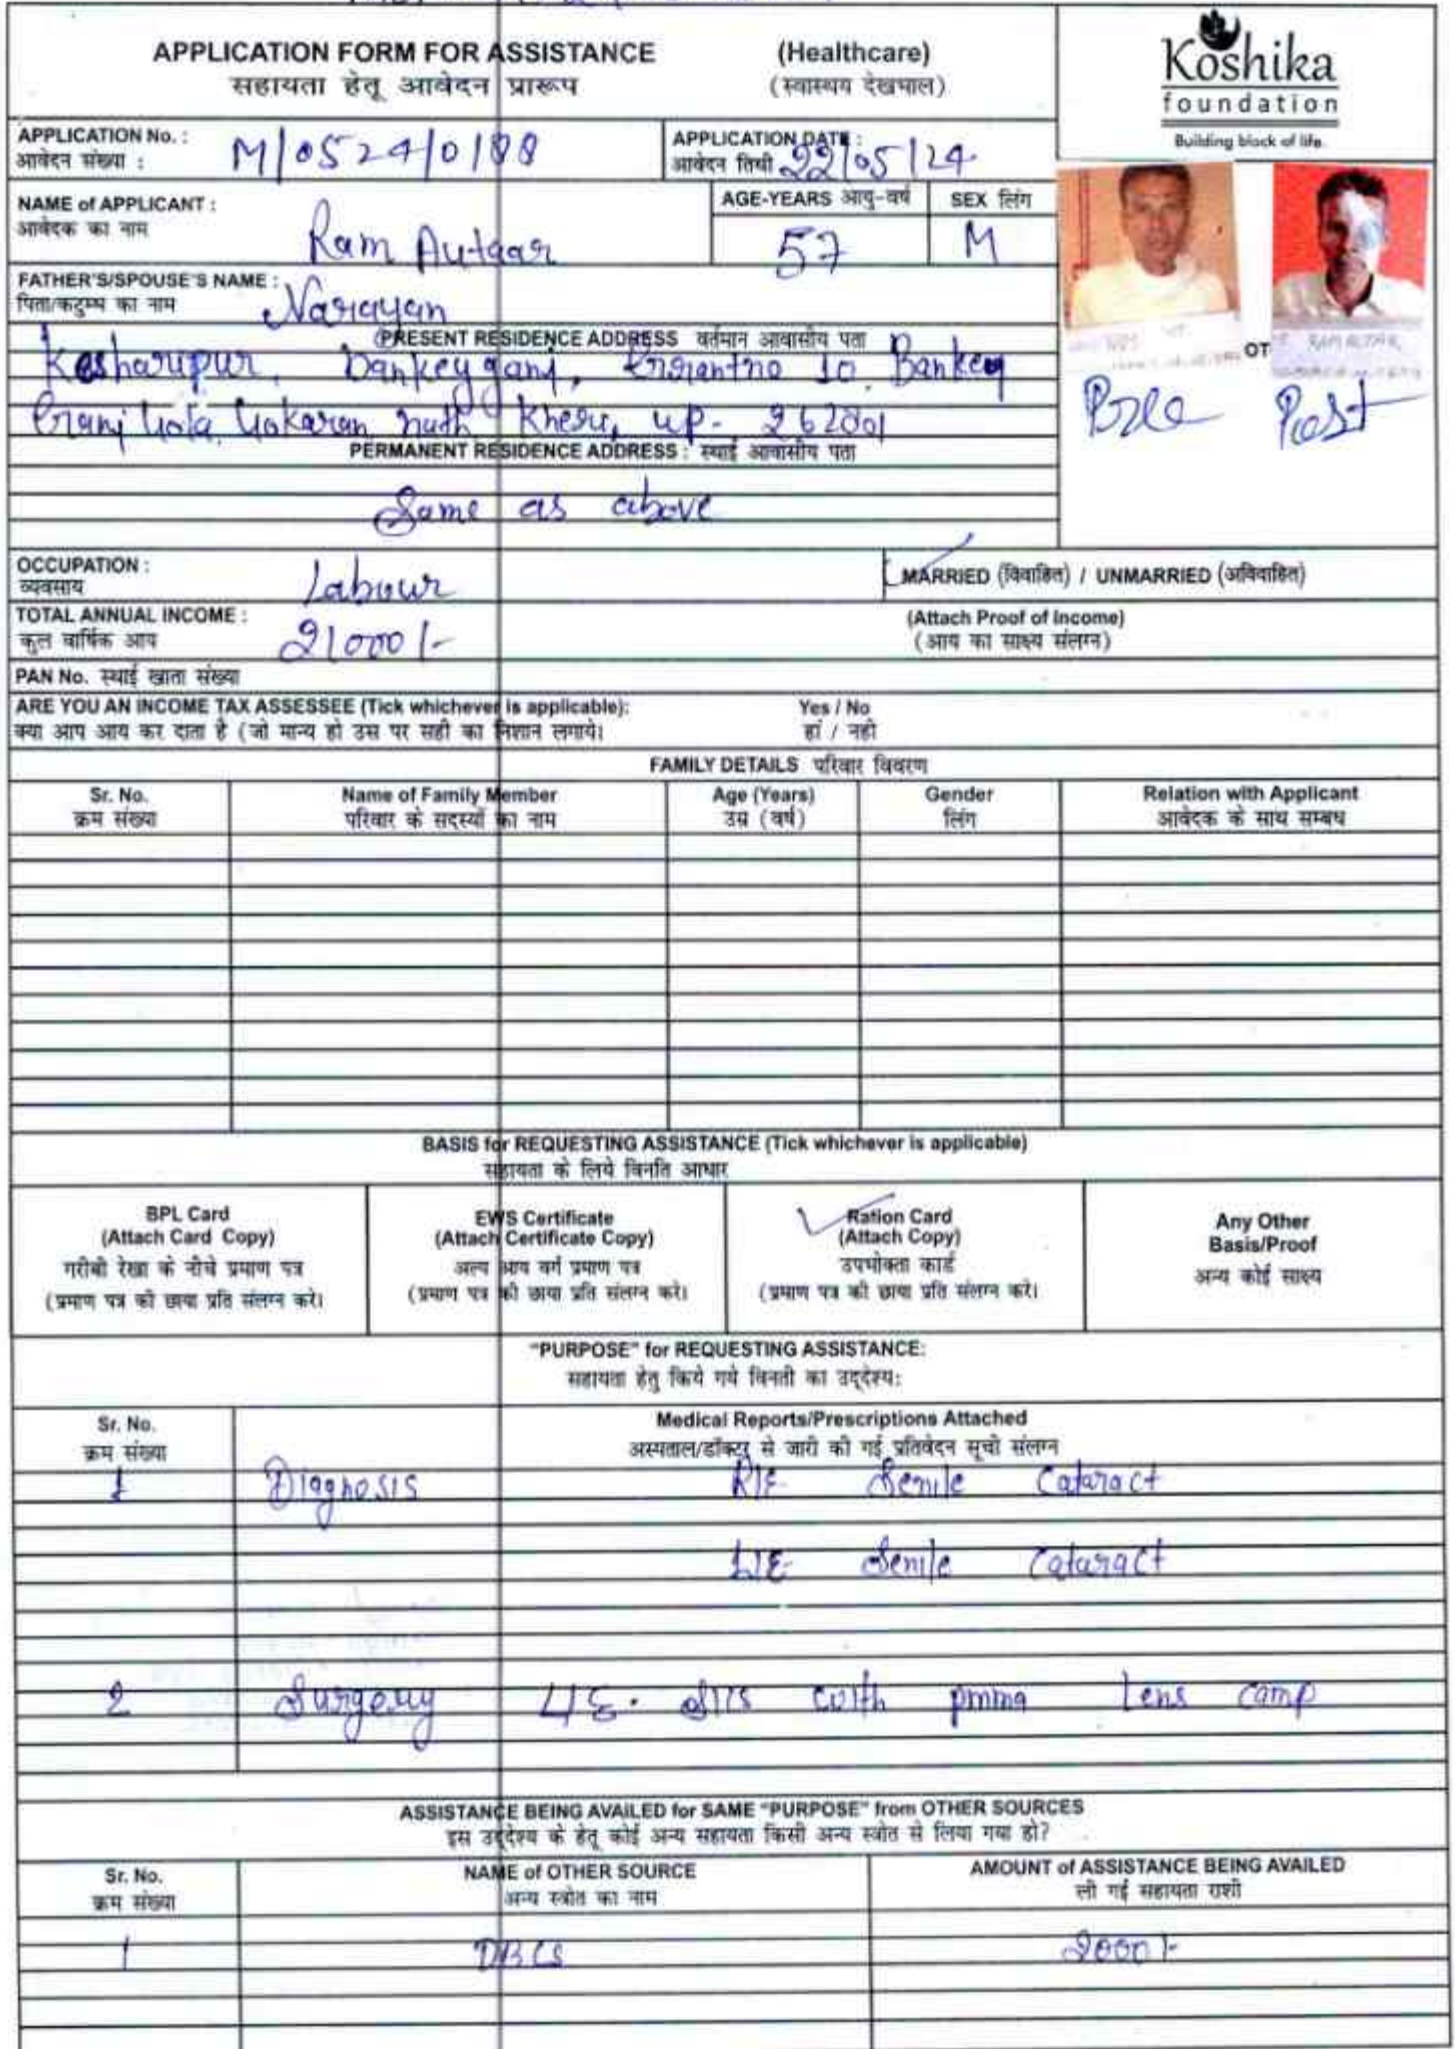 APPLICATION FORM FOR ASSISTANCE (Healthcare)
सहायता हेतू आवेदन प्रारूप (स्वास्थय देखभाल)
Koshika
foundation
Building block of life.
APPLICATION No. : M/0524/0188
आवेदन संख्या :
APPLICATION DATE : 22/05/24
आवेदन तिथी
NAME of APPLICANT : Ram Autaar
आवेदक का नाम
AGE-YEARS आयु-वर्ष 57
SEX लिंग M
FATHER'S/SPOUSE'S NAME : Narayan
पिता/कटुम्ब का नाम
PRESENT RESIDENCE ADDRESS वर्तमान आवासीय पता
Kesharipur, Bankeyganj, 10, Bankey
Ganj Gola Gokaran nath Kheri, up- 262801
Pre Post
PERMANENT RESIDENCE ADDRESS : स्थाई आवासीय पता
Same as above
OCCUPATION : Labour
व्यवसाय
MARRIED (विवाहित) / UNMARRIED (अविवाहित)
TOTAL ANNUAL INCOME : 21000/-
कुल वार्षिक आय
(Attach Proof of Income)
(आय का साक्ष्य संलग्न)
PAN No. स्थाई खाता संख्या
ARE YOU AN INCOME TAX ASSESSEE (Tick whichever is applicable): Yes / No
क्या आप आय कर दाता है (जो मान्य हो उस पर सही का निशान लगाये। हां / नही
FAMILY DETAILS परिवार विवरण
Sr. No. Name of Family Member Age (Years) Gender Relation with Applicant
क्रम संख्या परिवार के सदस्यों का नाम उम्र (वर्ष) लिंग आवेदक के साथ सम्बध
BASIS for REQUESTING ASSISTANCE (Tick whichever is applicable)
सहायता के लिये विनति आधार
BPL Card
(Attach Card Copy)
गरीबी रेखा के नीचे प्रमाण पत्र
(प्रमाण पत्र की छाया प्रति संलग्न करे।
EWS Certificate
(Attach Certificate Copy)
अल्प आय वर्ग प्रमाण पत्र
(प्रमाण पत्र की छाया प्रति संलग्न करे।
Ration Card
(Attach Copy)
उपभोक्ता कार्ड
(प्रमाण पत्र की छाया प्रति संलग्न करे।
Any Other
Basis/Proof
अन्य कोई साक्ष्य
"PURPOSE" for REQUESTING ASSISTANCE:
सहायता हेतु किये गये विनती का उद्देश्य:
Sr. No. Medical Reports/Prescriptions Attached
क्रम संख्या अस्पताल/डॉक्टर से जारी की गई प्रतिवेदन सूची संलग्न
1 Diagnosis R/E Senile Cataract
L/E Senile Cataract
2 Surgery L/E. SICS with pmma lens camp
ASSISTANCE BEING AVAILED for SAME "PURPOSE" from OTHER SOURCES
इस उद्देश्य के हेतू कोई अन्य सहायता किसी अन्य स्त्रोत से लिया गया हो?
Sr. No. NAME of OTHER SOURCE AMOUNT of ASSISTANCE BEING AVAILED
क्रम संख्या अन्य स्त्रोत का नाम ली गई सहायता राशी
1 DBCS 2000/-